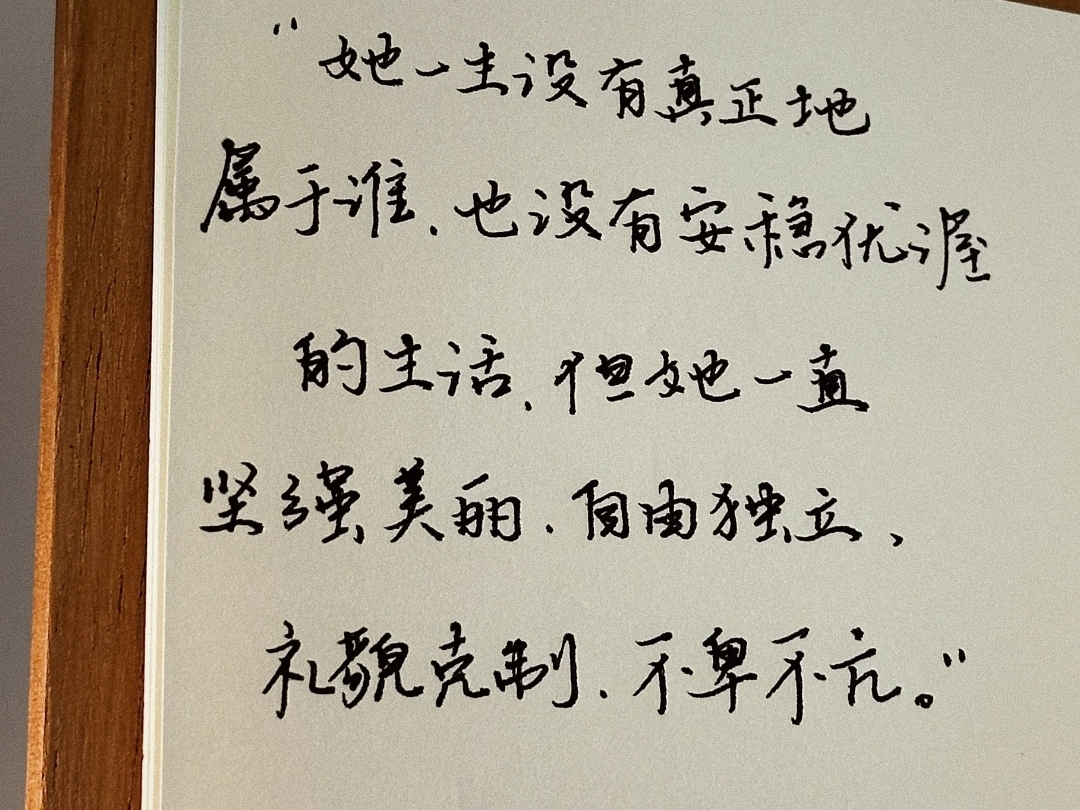 "她一生没有真正地
属于谁、也没有安稳优渥
的生活、但她一直
坚强美丽、自由独立、
礼貌克制、不卑不亢。"